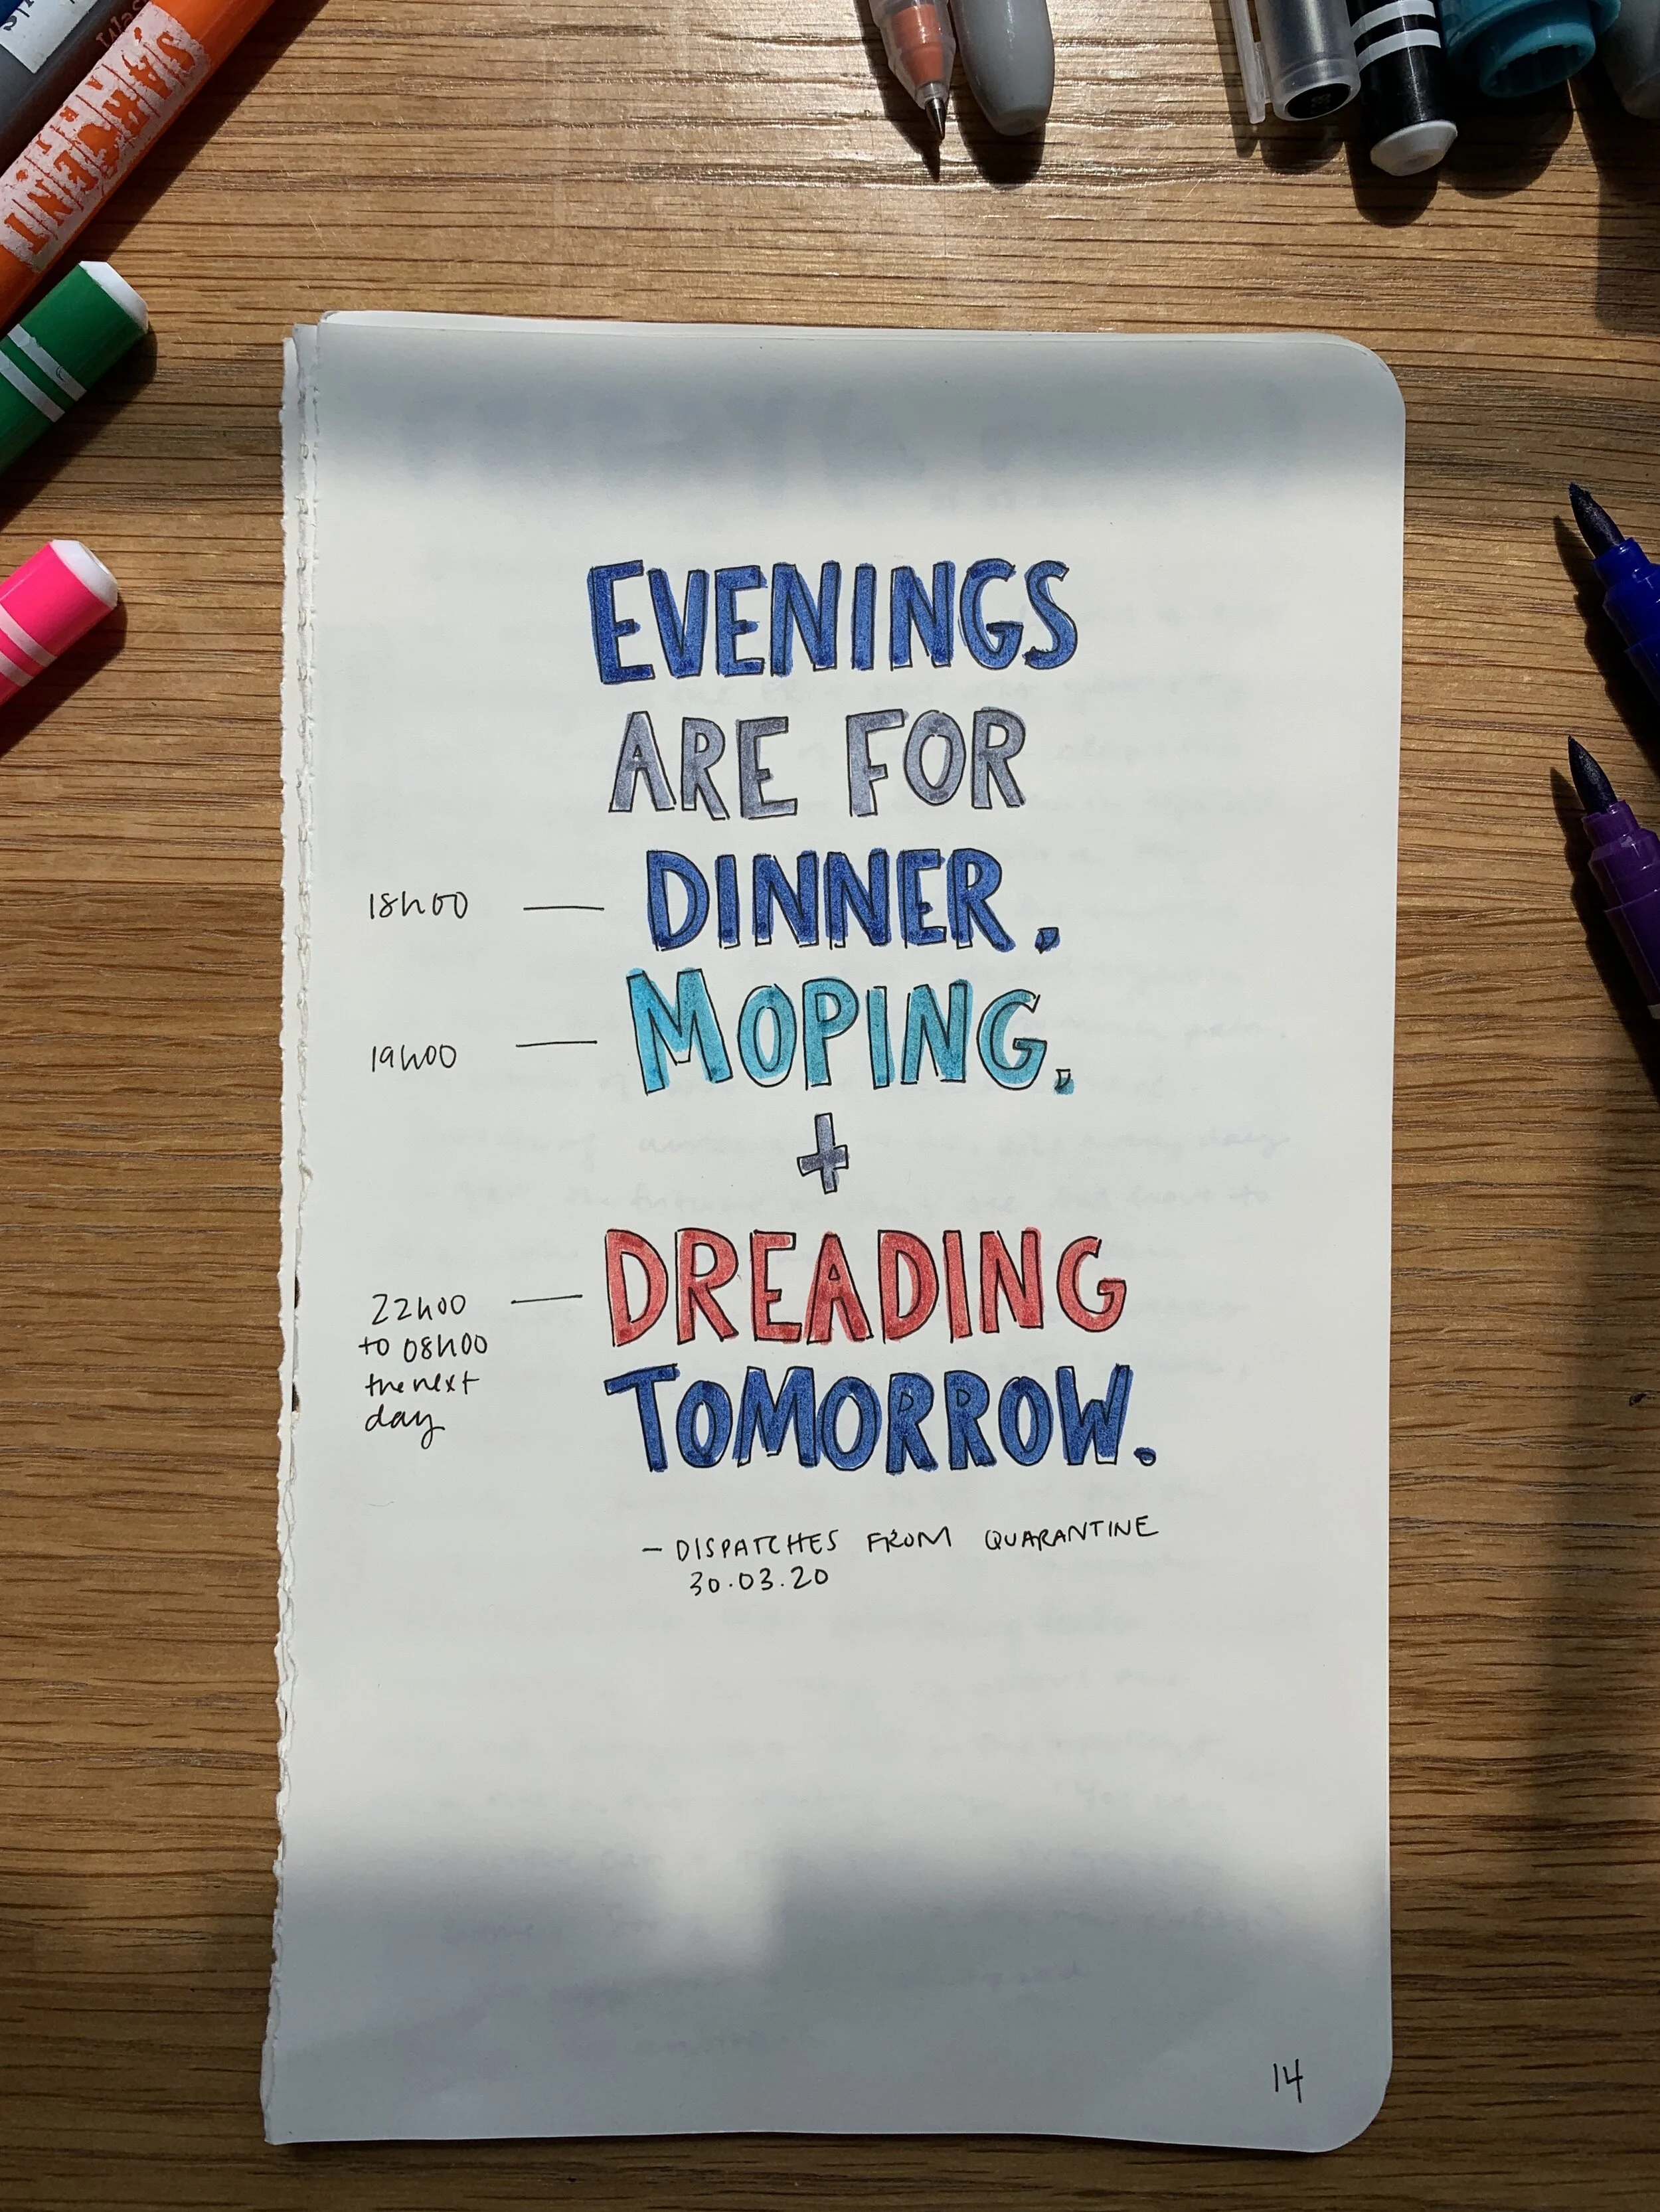 SARGENT
EVENINGS
ARE FOR
18h00 — DINNER,
19h00 — MOPING,
+
22h00 — DREADING
to 08h00
the next
day
TOMORROW.
— DISPATCHES FROM QUARANTINE
30.03.20
14